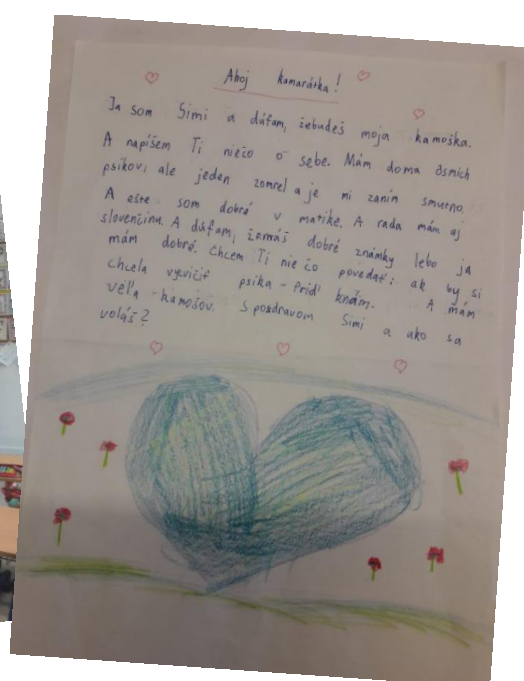 Ahoj kamarátka!
Ja som Simi a dúfam, žebudeš moja kamoška.
A napíšem Ti niečo o sebe. Mám doma ôsmich
psíkov, ale jeden zomrel a je mi zaním smutno.
A ešte som dobrá v matike. A rada mám aj
slovenčinu. A dúfam, žemáš dobré známky lebo ja
mám dobré. Chcem Ti nie čo povedať: ak by si
chcela vycvičiť psíka - Príď knám. A mám
veľa kamošov. S pozdravom Simi a ako sa
voláš?